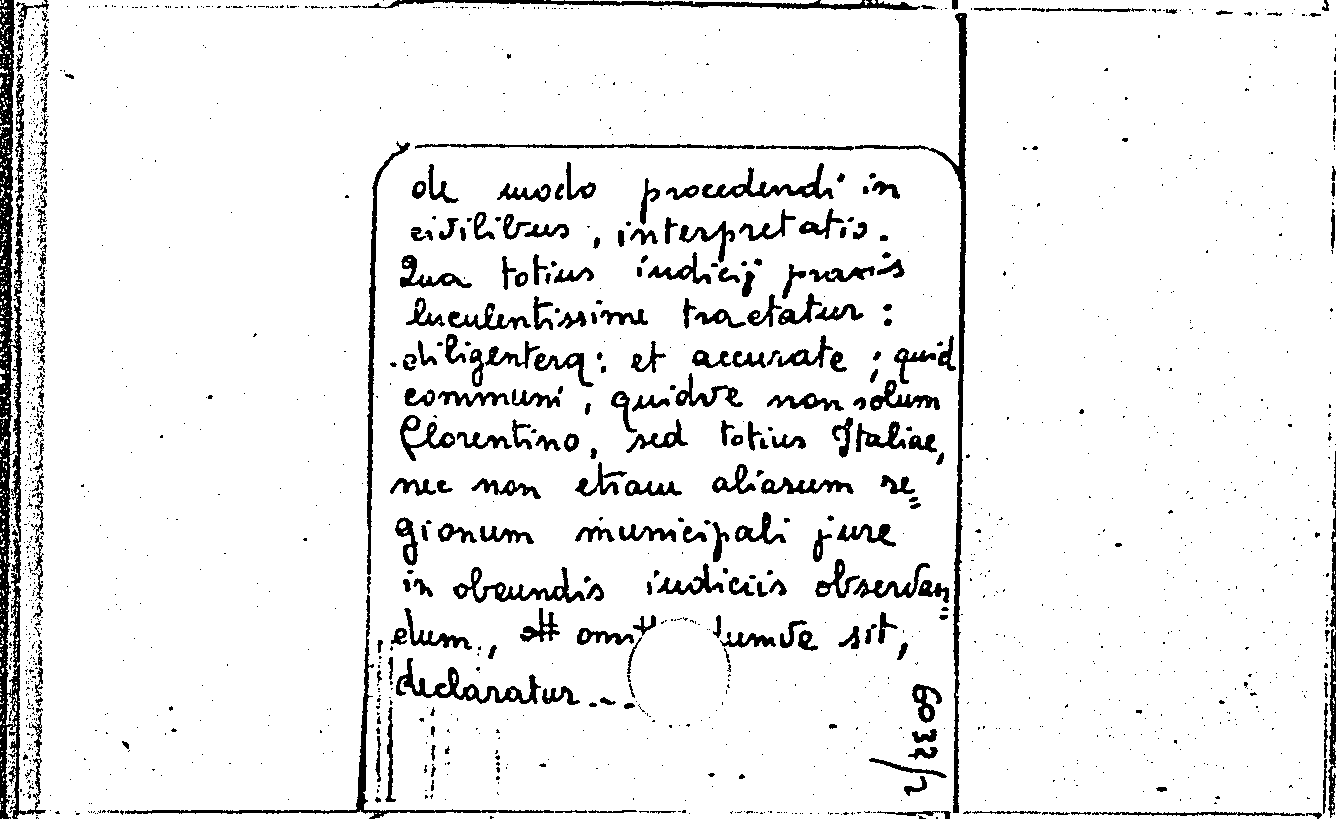 de modo procedendi in
civilibus, interpretatio.
Qua totius iudicij praxis
luculentissime tractatur:
diligenterq: et accurate; quid
communi, quidve non solum
Florentino, sed totius Italiae,
nec non etiam aliarum re=
gionum municipali jure
in obeundis iudiciis observan=
dum, sit,
declaratur...
6032/2